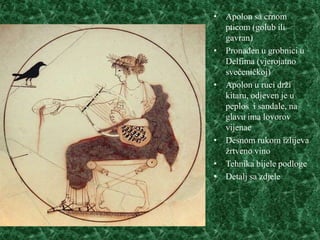 • Apolon sa crnom
pticom (golub ili
gavran)
• Pronađen u grobnici u
Delfima (vjerojatno
svećeničkoj)
• Apolon u ruci drži
kitaru, odjeven je u
peplos i sandale, na
glavu ima lovorov
vijenac
• Desnom rukom izlijeva
žrtveno vino
• Tehnika bijele podloge
• Detalj sa zdjele